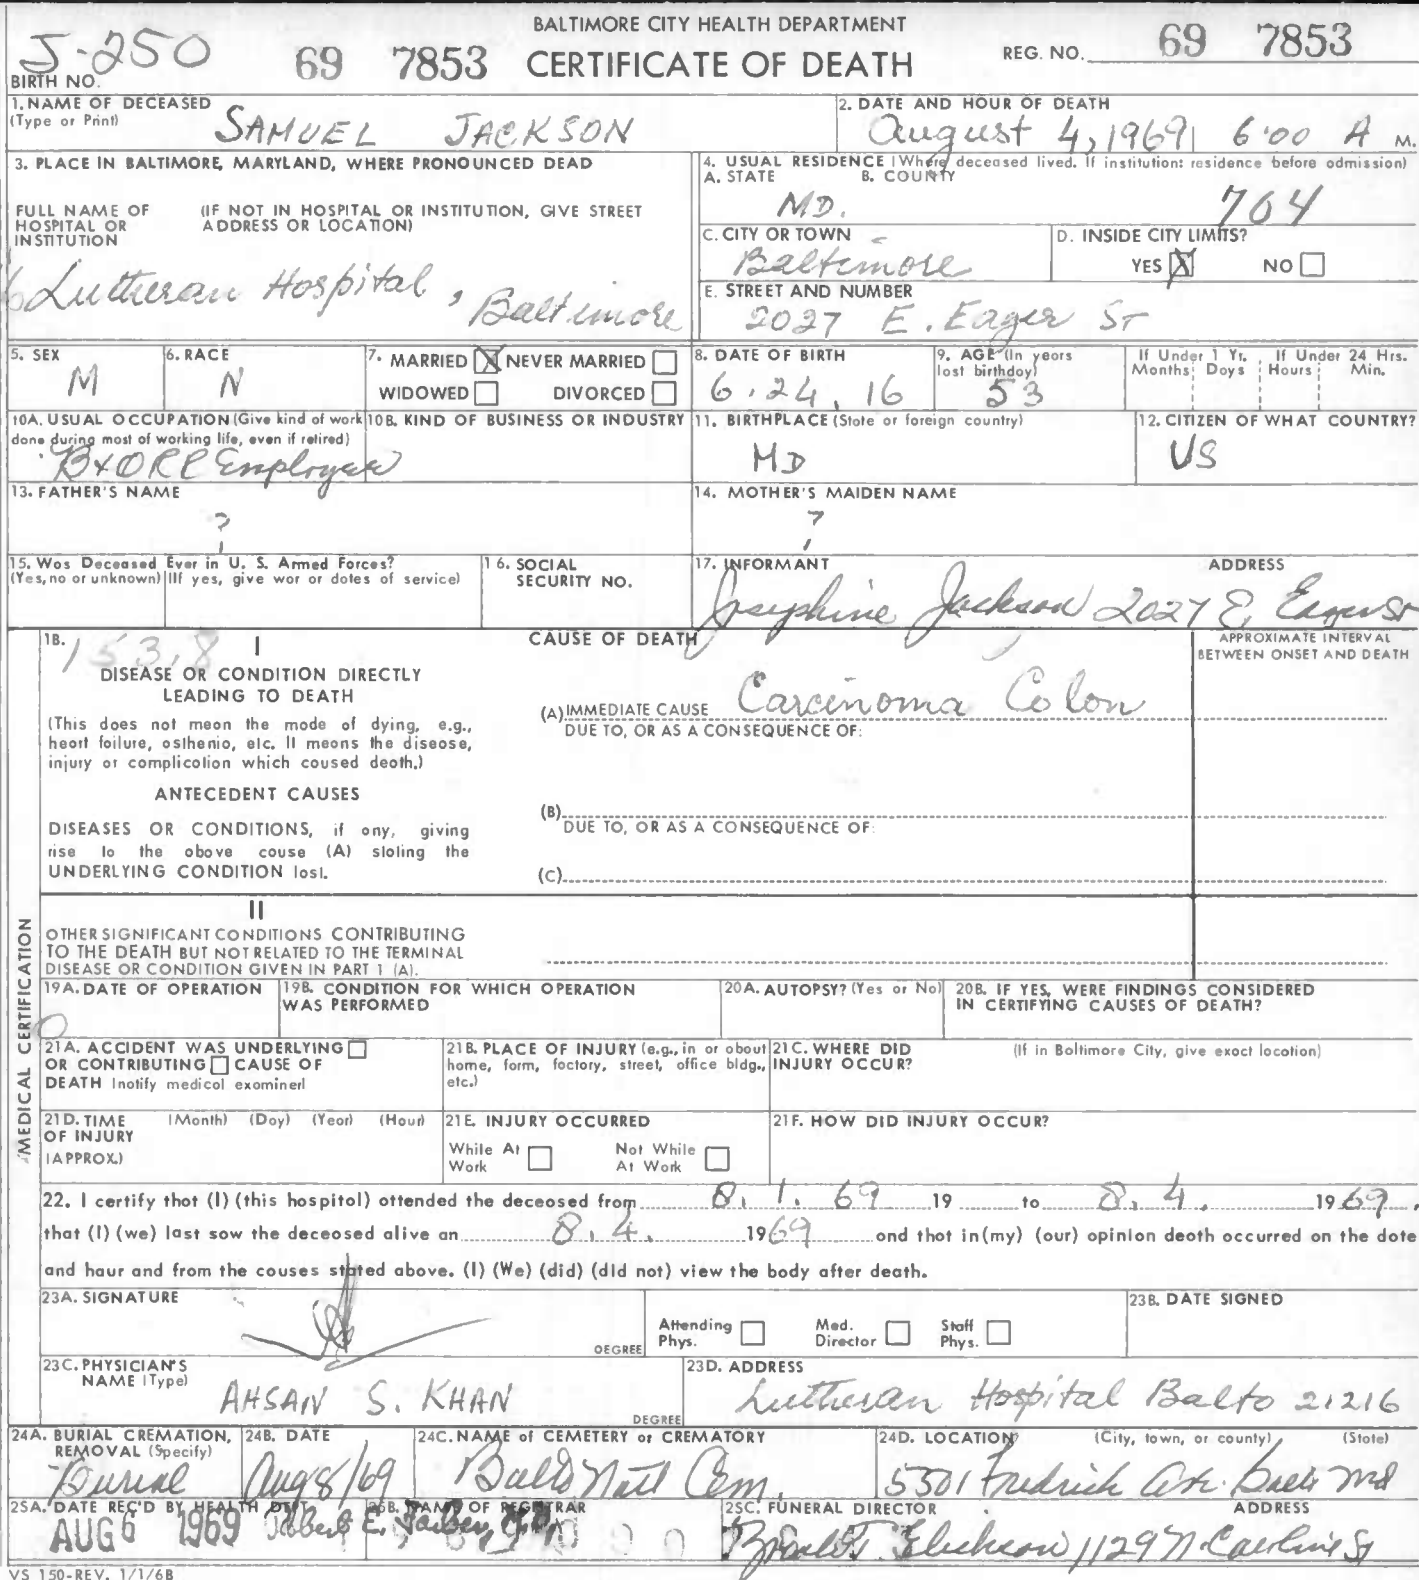 BALTIMORE CITY HEALTH DEPARTMENT
J-250 69 7853 CERTIFICATE OF DEATH REG. NO. 69 7853
BIRTH NO.
1. NAME OF DECEASED
(Type or Print) SAMUEL JACKSON
2. DATE AND HOUR OF DEATH
August 4, 1969 6:00 A M.
3. PLACE IN BALTIMORE, MARYLAND, WHERE PRONOUNCED DEAD
FULL NAME OF HOSPITAL OR INSTITUTION
(IF NOT IN HOSPITAL OR INSTITUTION, GIVE STREET ADDRESS OR LOCATION)
Lutheran Hospital, Baltimore
4. USUAL RESIDENCE (Where deceased lived. If institution: residence before admission)
A. STATE B. COUNTY
MD. 704
C. CITY OR TOWN
Baltimore
D. INSIDE CITY LIMITS?
YES X NO
E. STREET AND NUMBER
2027 E. Eager St
5. SEX
M
6. RACE
N
7. MARRIED X NEVER MARRIED
WIDOWED DIVORCED
8. DATE OF BIRTH
6.24.16
9. AGE (In years last birthday)
53
If Under 1 Yr. If Under 24 Hrs.
Months Days Hours Min.
10A. USUAL OCCUPATION (Give kind of work
done during most of working life, even if retired)
B&ORR Employee
10B. KIND OF BUSINESS OR INDUSTRY
11. BIRTHPLACE (State or foreign country)
MD
12. CITIZEN OF WHAT COUNTRY?
US
13. FATHER'S NAME
?
14. MOTHER'S MAIDEN NAME
?
15. Was Deceased Ever in U. S. Armed Forces?
(Yes, no or unknown) (If yes, give war or dates of service)
16. SOCIAL SECURITY NO.
17. INFORMANT ADDRESS
Josephine Jackson 2027 E. Eager St
18. 153.8
I
DISEASE OR CONDITION DIRECTLY
LEADING TO DEATH
(This does not mean the mode of dying, e.g.,
heart failure, asthenia, etc. It means the disease,
injury or complication which caused death.)
ANTECEDENT CAUSES
DISEASES OR CONDITIONS, if any, giving
rise to the above cause (A) stating the
UNDERLYING CONDITION last.
CAUSE OF DEATH
(A) IMMEDIATE CAUSE Carcinoma Colon
DUE TO, OR AS A CONSEQUENCE OF:
(B)
DUE TO, OR AS A CONSEQUENCE OF:
(C)
APPROXIMATE INTERVAL
BETWEEN ONSET AND DEATH
II
OTHER SIGNIFICANT CONDITIONS CONTRIBUTING
TO THE DEATH BUT NOT RELATED TO THE TERMINAL
DISEASE OR CONDITION GIVEN IN PART 1 (A).
MEDICAL CERTIFICATION
19A. DATE OF OPERATION
0
19B. CONDITION FOR WHICH OPERATION
WAS PERFORMED
20A. AUTOPSY? (Yes or No)
20B. IF YES, WERE FINDINGS CONSIDERED
IN CERTIFYING CAUSES OF DEATH?
21A. ACCIDENT WAS UNDERLYING
OR CONTRIBUTING CAUSE OF
DEATH (notify medical examiner)
21B. PLACE OF INJURY (e.g., in or about
home, farm, factory, street, office bldg.,
etc.)
21C. WHERE DID INJURY OCCUR?
(If in Baltimore City, give exact location)
21D. TIME OF INJURY (APPROX.)
(Month) (Day) (Year) (Hour)
21E. INJURY OCCURRED
While At Work Not While At Work
21F. HOW DID INJURY OCCUR?
22. I certify that (I) (this hospital) attended the deceased from 8.1.69 19 to 8.4. 1969,
that (I) (we) last saw the deceased alive on 8.4. 1969 and that in (my) (our) opinion death occurred on the date
and hour and from the causes stated above. (I) (We) (did) (did not) view the body after death.
23A. SIGNATURE
DEGREE
Attending Phys. Med. Director Staff Phys.
23B. DATE SIGNED
23C. PHYSICIAN'S NAME (Type)
AHSAN S. KHAN
DEGREE
23D. ADDRESS
Lutheran Hospital Balto 21216
24A. BURIAL CREMATION, REMOVAL (Specify)
Burial
24B. DATE
Aug 8/69
24C. NAME of CEMETERY or CREMATORY
Balto Natl Cem.
24D. LOCATION (City, town, or county) (State)
5501 Fredrick Ave. Balto Md
25A. DATE REC'D BY HEALTH DEPT.
AUG 6 1969
25B. NAME OF REGISTRAR
Robert E. Farber
25C. FUNERAL DIRECTOR ADDRESS
1129 N. Caroline St
VS 150-REV. 1/1/68